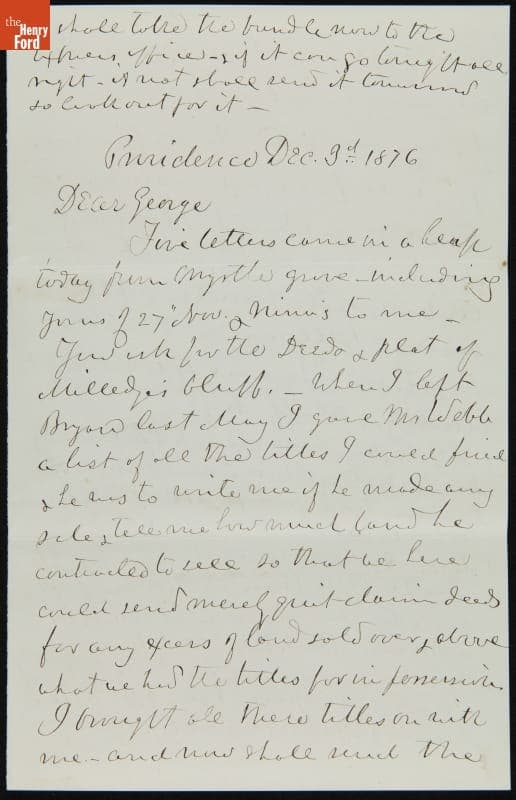 the
Henry
Ford
shall take the bundle now to the
Express office - & if it can go tonight all
right - if not shall send it tomorrow
so look out for it -
Providence Dec. 3d. 1876
Dear George
Five letters came in a heap
today from Myrtle grove - including
yours of 27" Nov. & Nina's to me -
You ask for the Deeds & plat of
Milledge's bluff. - When I left
Bryan last May I gave Mr Webb
a list of all the titles I could find
& he was to write me if he made any
sale, & tell me how much land he
contracted to sell so that we here
could send merely quit claim deeds
for any excess of land sold over & above
what we had the titles for in possession.
I brought all these titles on with
me - and now shall send the